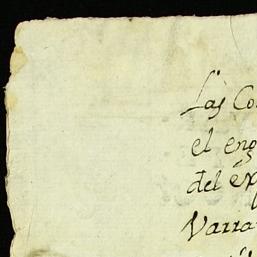 Las Co
el eng
del ex
Varra